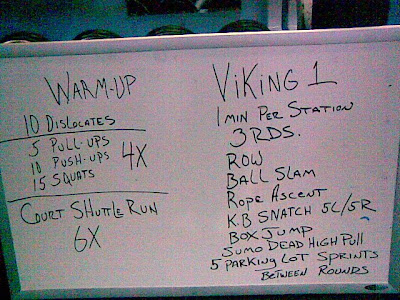 WARM-UP
10 DISLOCATES
5 PULL-UPS
10 PUSH-UPS
15 SQUATS
4X
COURT SHUTTLE RUN
6X
VIKING 1
1 MIN PER STATION
3 RDS.
ROW
BALL SLAM
ROPE ASCENT
K.B SNATCH 5L/5R
BOX JUMP
SUMO DEAD HIGH PULL
5 PARKING LOT SPRINTS
BETWEEN ROUNDS